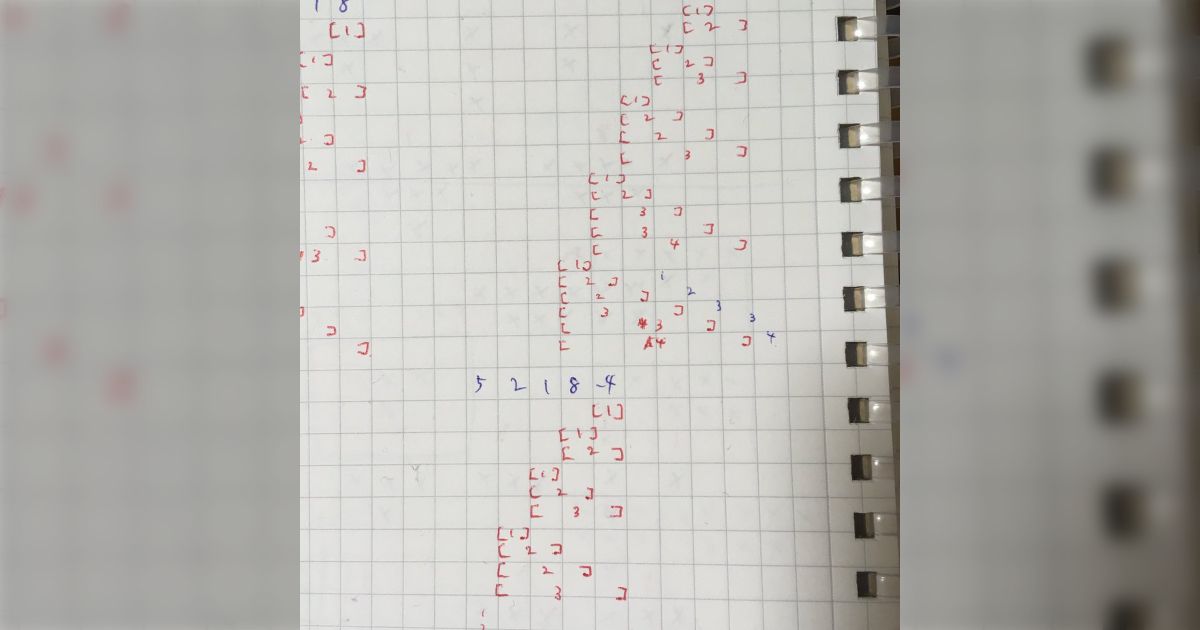 1 8
[1]
1]
[ 2 ]
]
2 ]
]
3 ]
]
]
[1]
[ 2 ]
[1]
[ 2 ]
[ 3 ]
[1]
[ 2 ]
[ 2 ]
[ 3 ]
[1]
[ 2 ]
[ 3 ]
[ 3 ]
[ 4 ]
[1]
[ 2 ] 1
[ 2 ] 2
[ 3 ] 3
[ 3 ] 3
[ 4 ] 4
5 2 1 8 -4
[1]
[1]
[ 2 ]
[1]
[ 2 ]
[ 3 ]
[1]
[ 2 ]
[ 2 ]
[ 3 ]